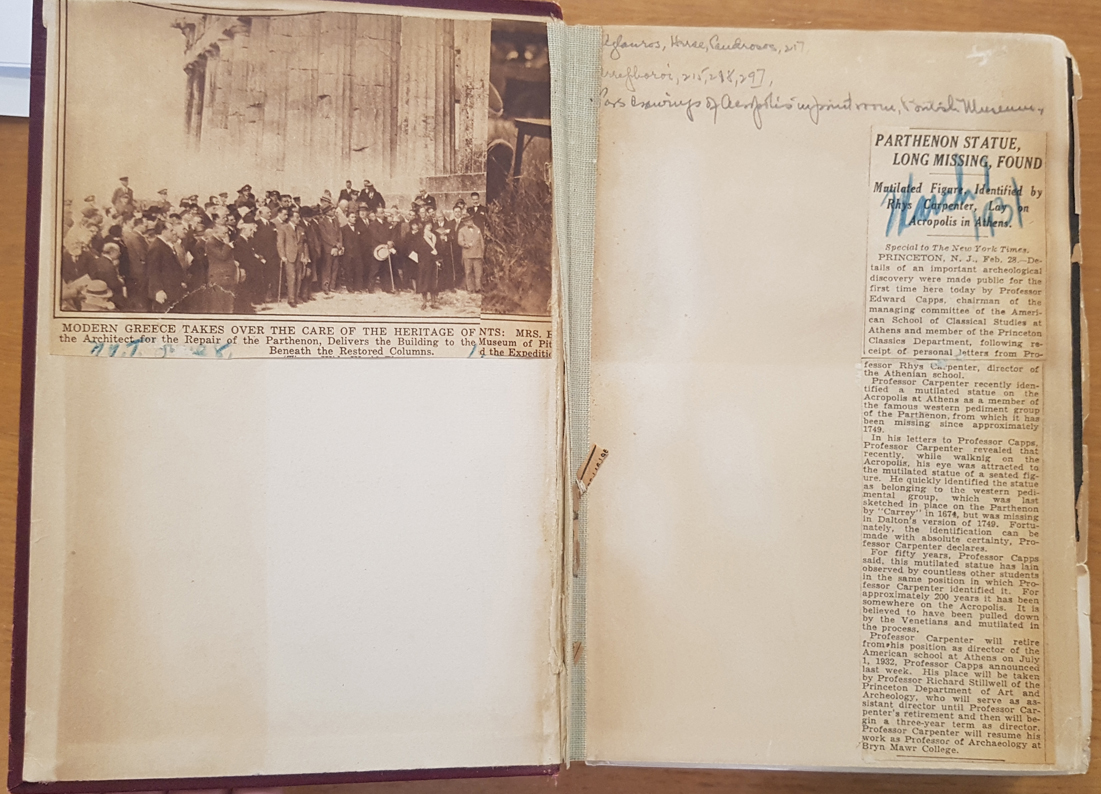 MODERN GREECE TAKES OVER THE CARE OF THE HERITAGE OF
the Architect for the Repair of the Parthenon, Delivers the Building to the
Beneath the Restored Columns.
NTS: MRS.
Museum of Pit
d the Expeditio
217
215, 298, 297,
drawings of Acropolis in print room, British Museum
PARTHENON STATUE,
LONG MISSING, FOUND
Mutilated Figure, Identified by
Rhys Carpenter, Lay on
Acropolis in Athens.
March 1 1931
Special to The New York Times.
PRINCETON, N. J., Feb. 28.—De-
tails of an important archeological
discovery were made public for the
first time here today by Professor
Edward Capps, chairman of the
managing committee of the Ameri-
can School of Classical Studies at
Athens and member of the Princeton
Classics Department, following re-
ceipt of personal letters from Pro-
fessor Rhys Carpenter, director of
the Athenian school.
Professor Carpenter recently iden-
tified a mutilated statue on the
Acropolis at Athens as a member of
the famous western pediment group
of the Parthenon, from which it has
been missing since approximately
1749.
In his letters to Professor Capps,
Professor Carpenter revealed that
recently, while walknig on the
Acropolis, his eye was attracted to
the mutilated statue of a seated fig-
ure. He quickly identified the statue
as belonging to the western pedi-
mental group, which was last
sketched in place on the Parthenon
by "Carrey" in 1674, but was missing
in Dalton's version of 1749. Fortu-
nately, the identification can be
made with absolute certainty, Pro-
fessor Carpenter declares.
For fifty years, Professor Capps
said, this mutilated statue has lain
observed by countless other students
in the same position in which Pro-
fessor Carpenter identified it. For
approximately 200 years it has been
somewhere on the Acropolis. It is
believed to have been pulled down
by the Venetians and mutilated in
the process.
Professor Carpenter will retire
from his position as director of the
American school at Athens on July
1, 1932, Professor Capps announced
last week. His place will be taken
by Professor Richard Stillwell of the
Princeton Department of Art and
Archeology, who will serve as as-
sistant director until Professor Car-
penter's retirement and then will be-
gin a three-year term as director.
Professor Carpenter will resume his
work as Professor of Archaeology at
Bryn Mawr College.